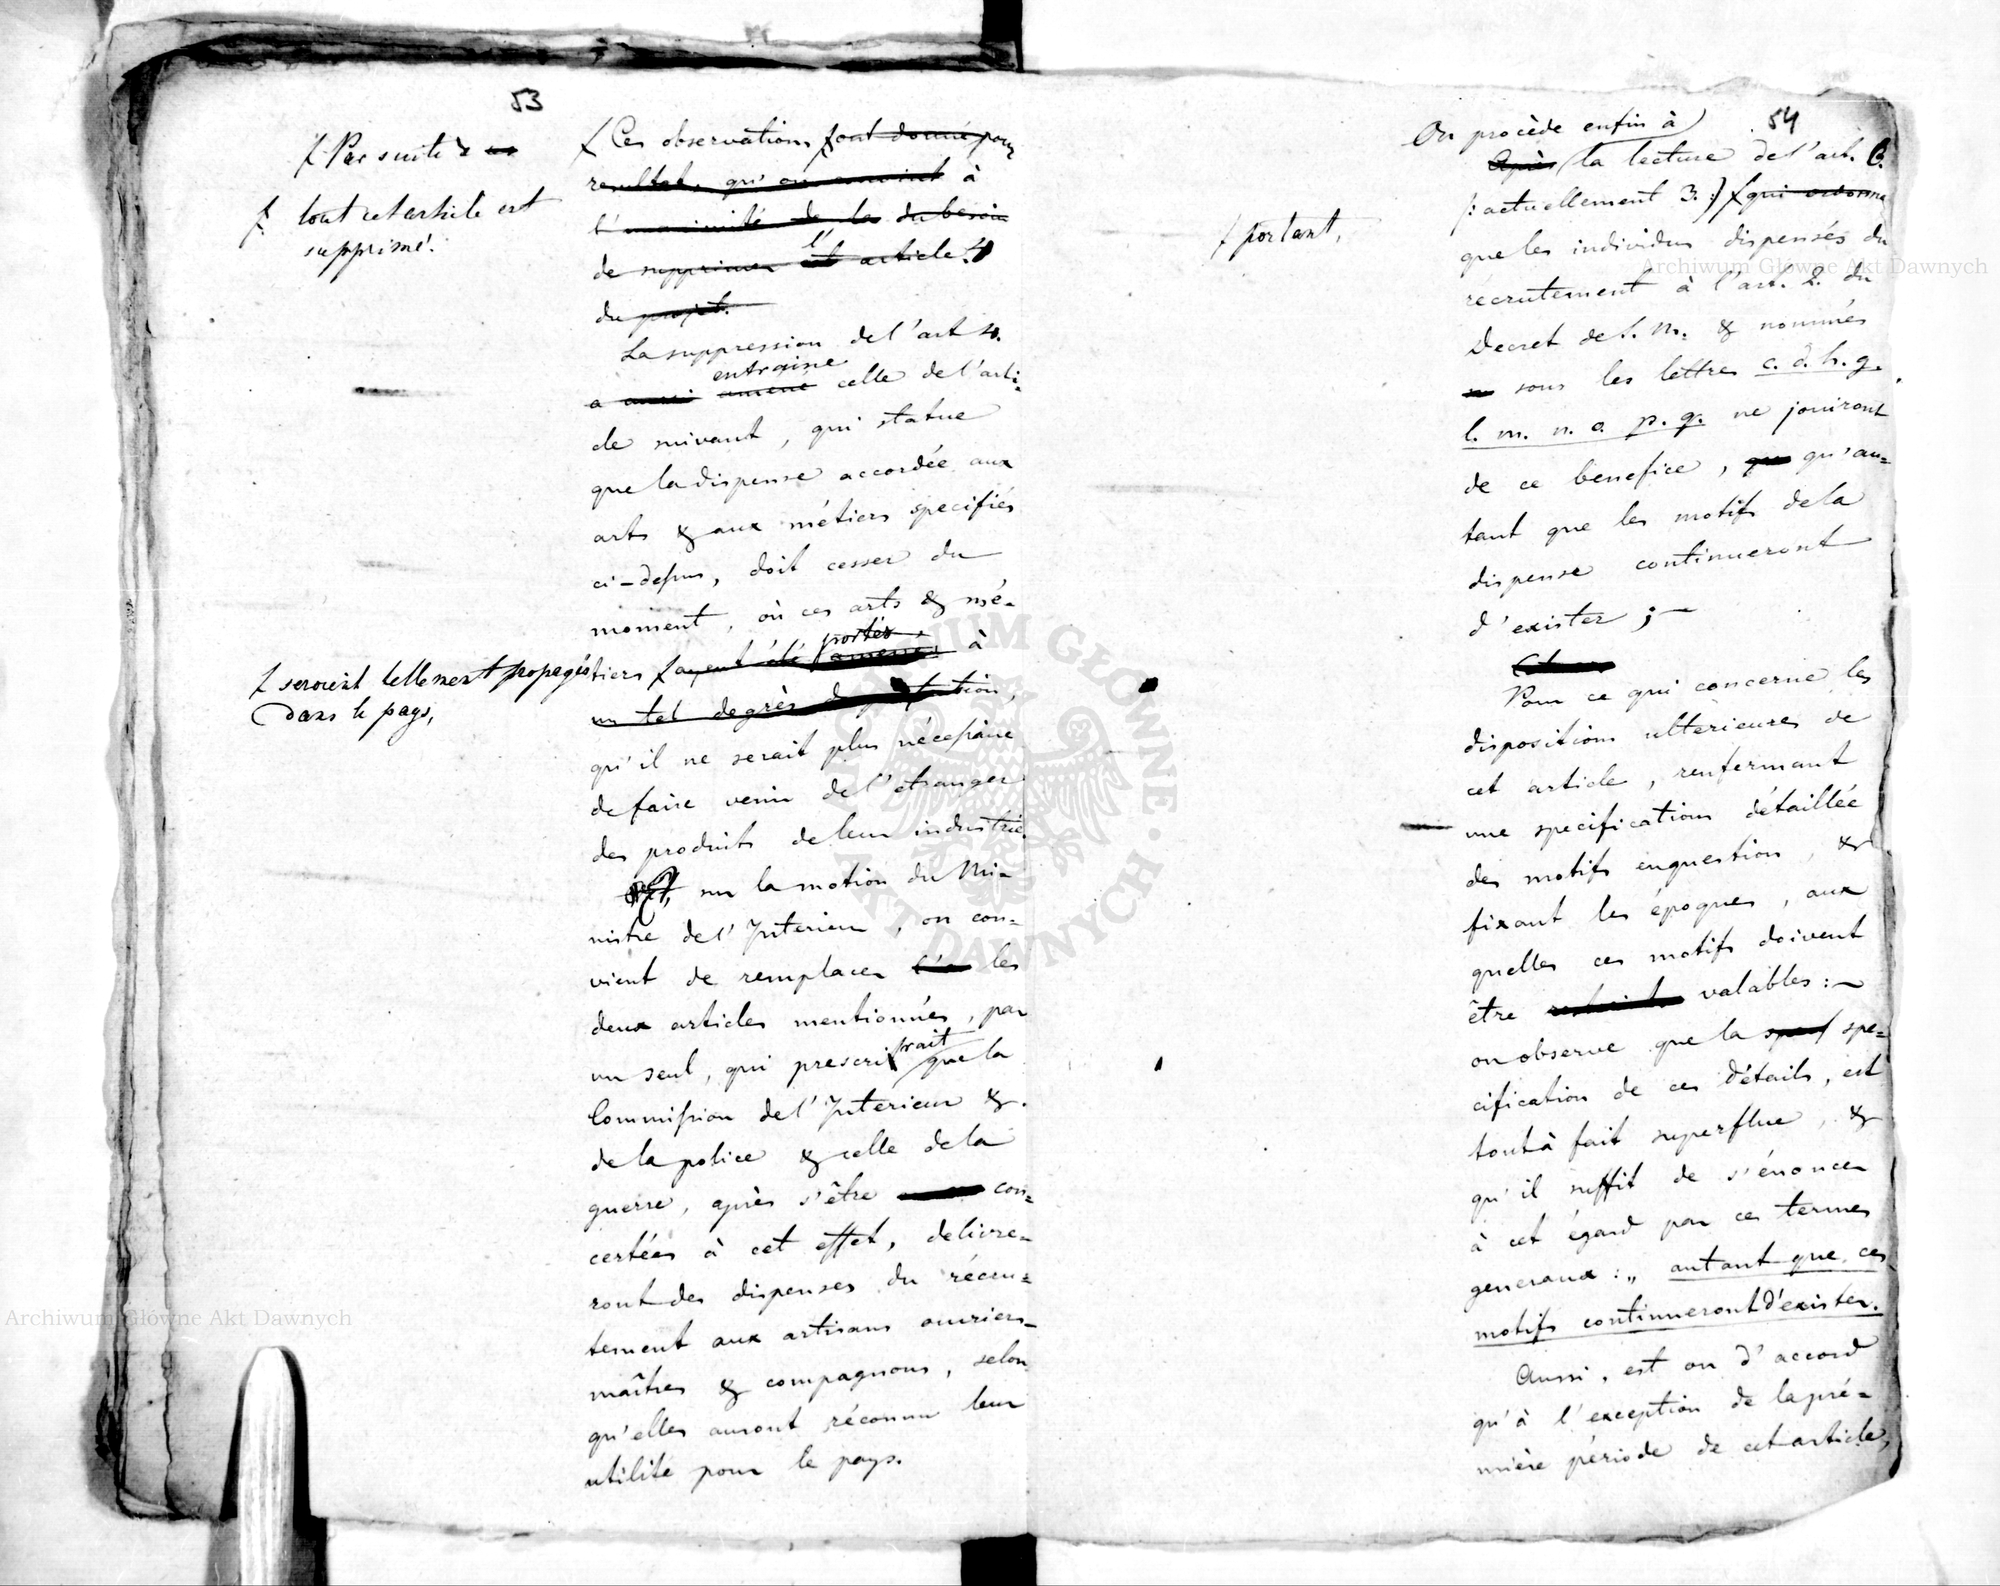 53
Par suite de
tout cet article est
supprimé.
seroient tellement propagés
dans le pays,
Ces observations ont donné pour
resultat, qu'on convint à
l'unanimité de la du besoin
de supprimer l' article 4
du projet.
La suppression de l'art 4.
entraine
a aussi amené celle de l'arti-
cle suivant, qui statue
que la dispense accordée aux
arts & aux métiers specifiés
ci-dessus, doit cesser du
moment, où ces arts & mé-
portés
tiers ayent été amenés à
un tel degrès de
qu'il ne serait plus nécessaire
de faire venir de l'etranger
des produits de leur industrie.
sur la motion du Mi-
nistre de l'Interieur, on con=
vient de remplacer les
deux articles mentionnés, par
un seul, qui prescrirait que la
Commission de l'Interieur &
de la police & celle de la
guerre, après s'être con=
certées à cet effet, delivre-
ront des dispenses du récru=
tement aux artisans ouvriers-
maîtres & compagnons, selon
qu'elles auront réconnu leur
utilité pour le pays.
54
portant,
On procède enfin à
Après la lecture de l'art. 6.
/: actuellement 3. :/ qui ordonne
que les individus dispensés du
récrutement à l'art. 2. du
Decret de S. M. & nommés
sous les lettres c. d. h. g.
l. m. n. o. p. q. ne jouiront
de ce benefice, que qu'au=
tant que les motifs de la
dispense continueront
d'exister ;—
Pour ce qui concerne les
dispositions ulterieures de
cet article, renfermant
une specification détaillée
des motifs enquestion, &
fixant les époques, aux
quelles ces motifs doivent
être valables :—
on observe que la spe=
cification de ces détails, est
tout à fait superflue, &
qu'il suffit de s'énoncer
à cet égard par ces termes
generaux : „ autant que ces
motifs continueront d'exister.
Aussi, est on d'accord
qu'à l'exception de la pré-
mière période de cet article,
Archiwum Główne Akt Dawnych
Archiwum Główne Akt Dawnych
ARCHIWUM GŁÓWNE · AKT DAWNYCH ·